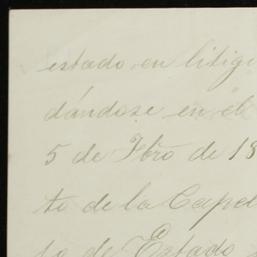 estado en litigi
dándose en el
5 de Fbro de 18
to de la Capel
to de Estado